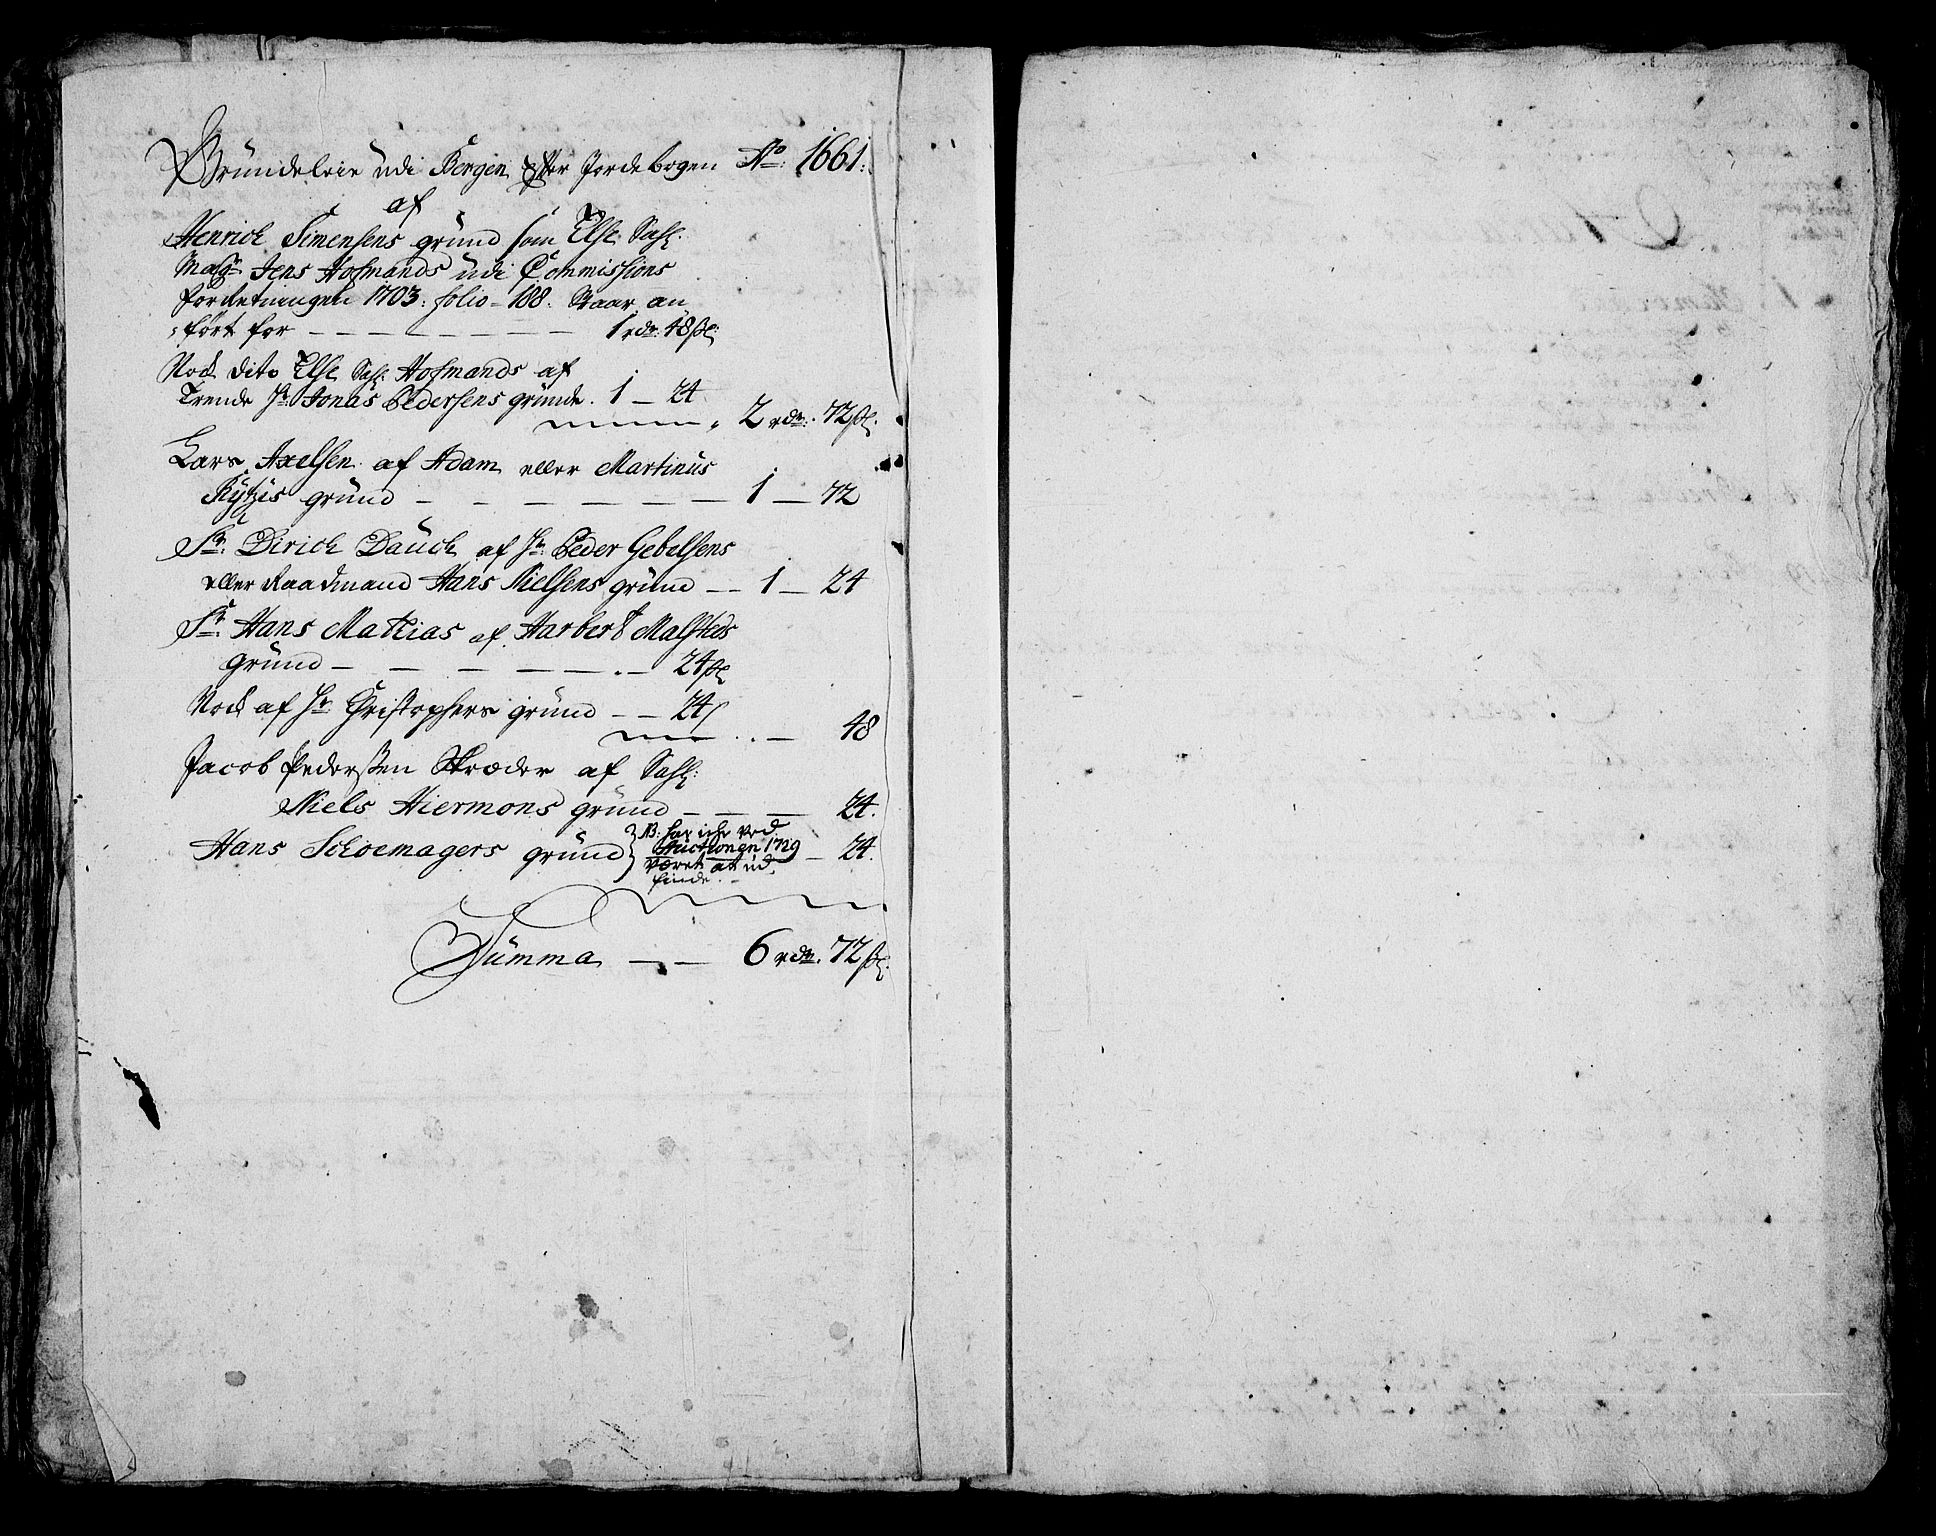 Gründeleie udi Bergen efter Jordebogen Ao: 1661:
af
Henrich Simensens gründ som Else Sahl:
Magr Jens Hofmands udi Commissions
forretningen 1703: folio - 188. Staar an,
,ført for - - - - - - - - 1 rdr: 48 sk:
Noch dito Else Sahl: Hofmands af
Trende Hr: Jonas Pedersens gründe. 1 - 24
2 rdr: 72 sk.
Lars Axelsen af Adam eller Martinüs
gründ - - - - - - 1 - 72
Sr: Dirich Daüch af Hr: Peder Gebelsens
eller Raadmand Hans Nielsens gründ - - 1 - 24
Sr: Hans Mathias af Harbert Malsteds
gründ - - - - - . - 24 sk
Noch af Hr: Christophers gründ - - 24
. . - 48
Jacob Pedersen Skræder af Sahl:
Niels Hiermons gründ - - - - 24.
Hans Schoemagers gründ - 24.
NB: har iche ved
Auctionen 1729
været at üd,
finde. -
Sümma - - 6 rdr. 72 sk.